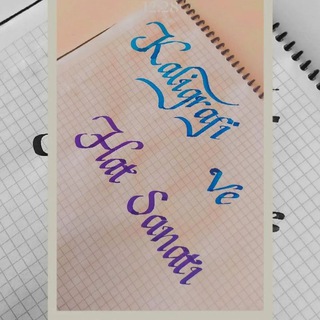 Kaligrafi
Ve
Hat Sanatı